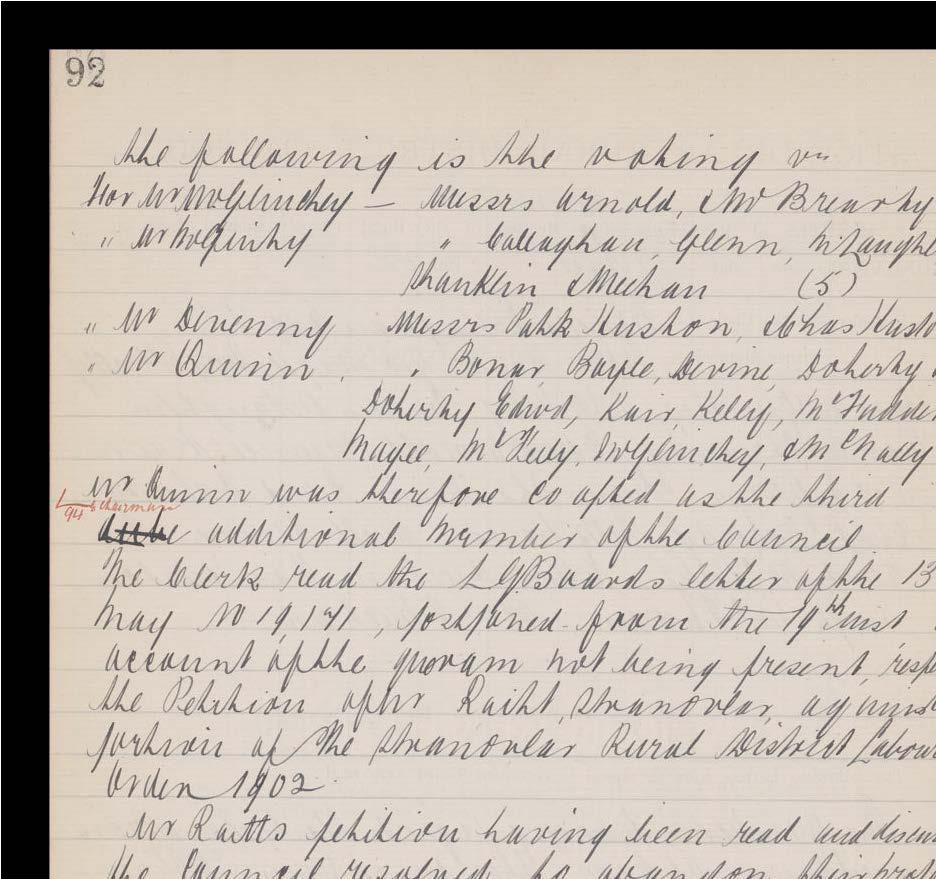 92
the following is the voting viz
For Mr McGlinchey — Messrs Arnold, & McBrearty
" Mr McGinty " Callaghan, Glenn, McLaughl
Shanklin & Meehan (5)
" Mr Devenny Messrs Patk Huston, & Chas Husto
" Mr Quinn. " Bonar, Boyle, Devine, Doherty
Doherty Edwd, Karr, Kelly, McFadde
Magee, McFeely, McGlinchey, & McNally
Mr Quinn was therefore co opted as the third
L/94 Chairman
additional member of the Council
The Clerk read the L G Boards letter of the 13
May No 19,141, postponed from the 19th inst
account of the quoram not being present, resp
the Petition of Mr Raitt, Stranorlar, agains
portion of the Stranorlar Rural District Labour
Order 1902.
Mr Raitts petition having been read and discu
the Council resolved to abandon their